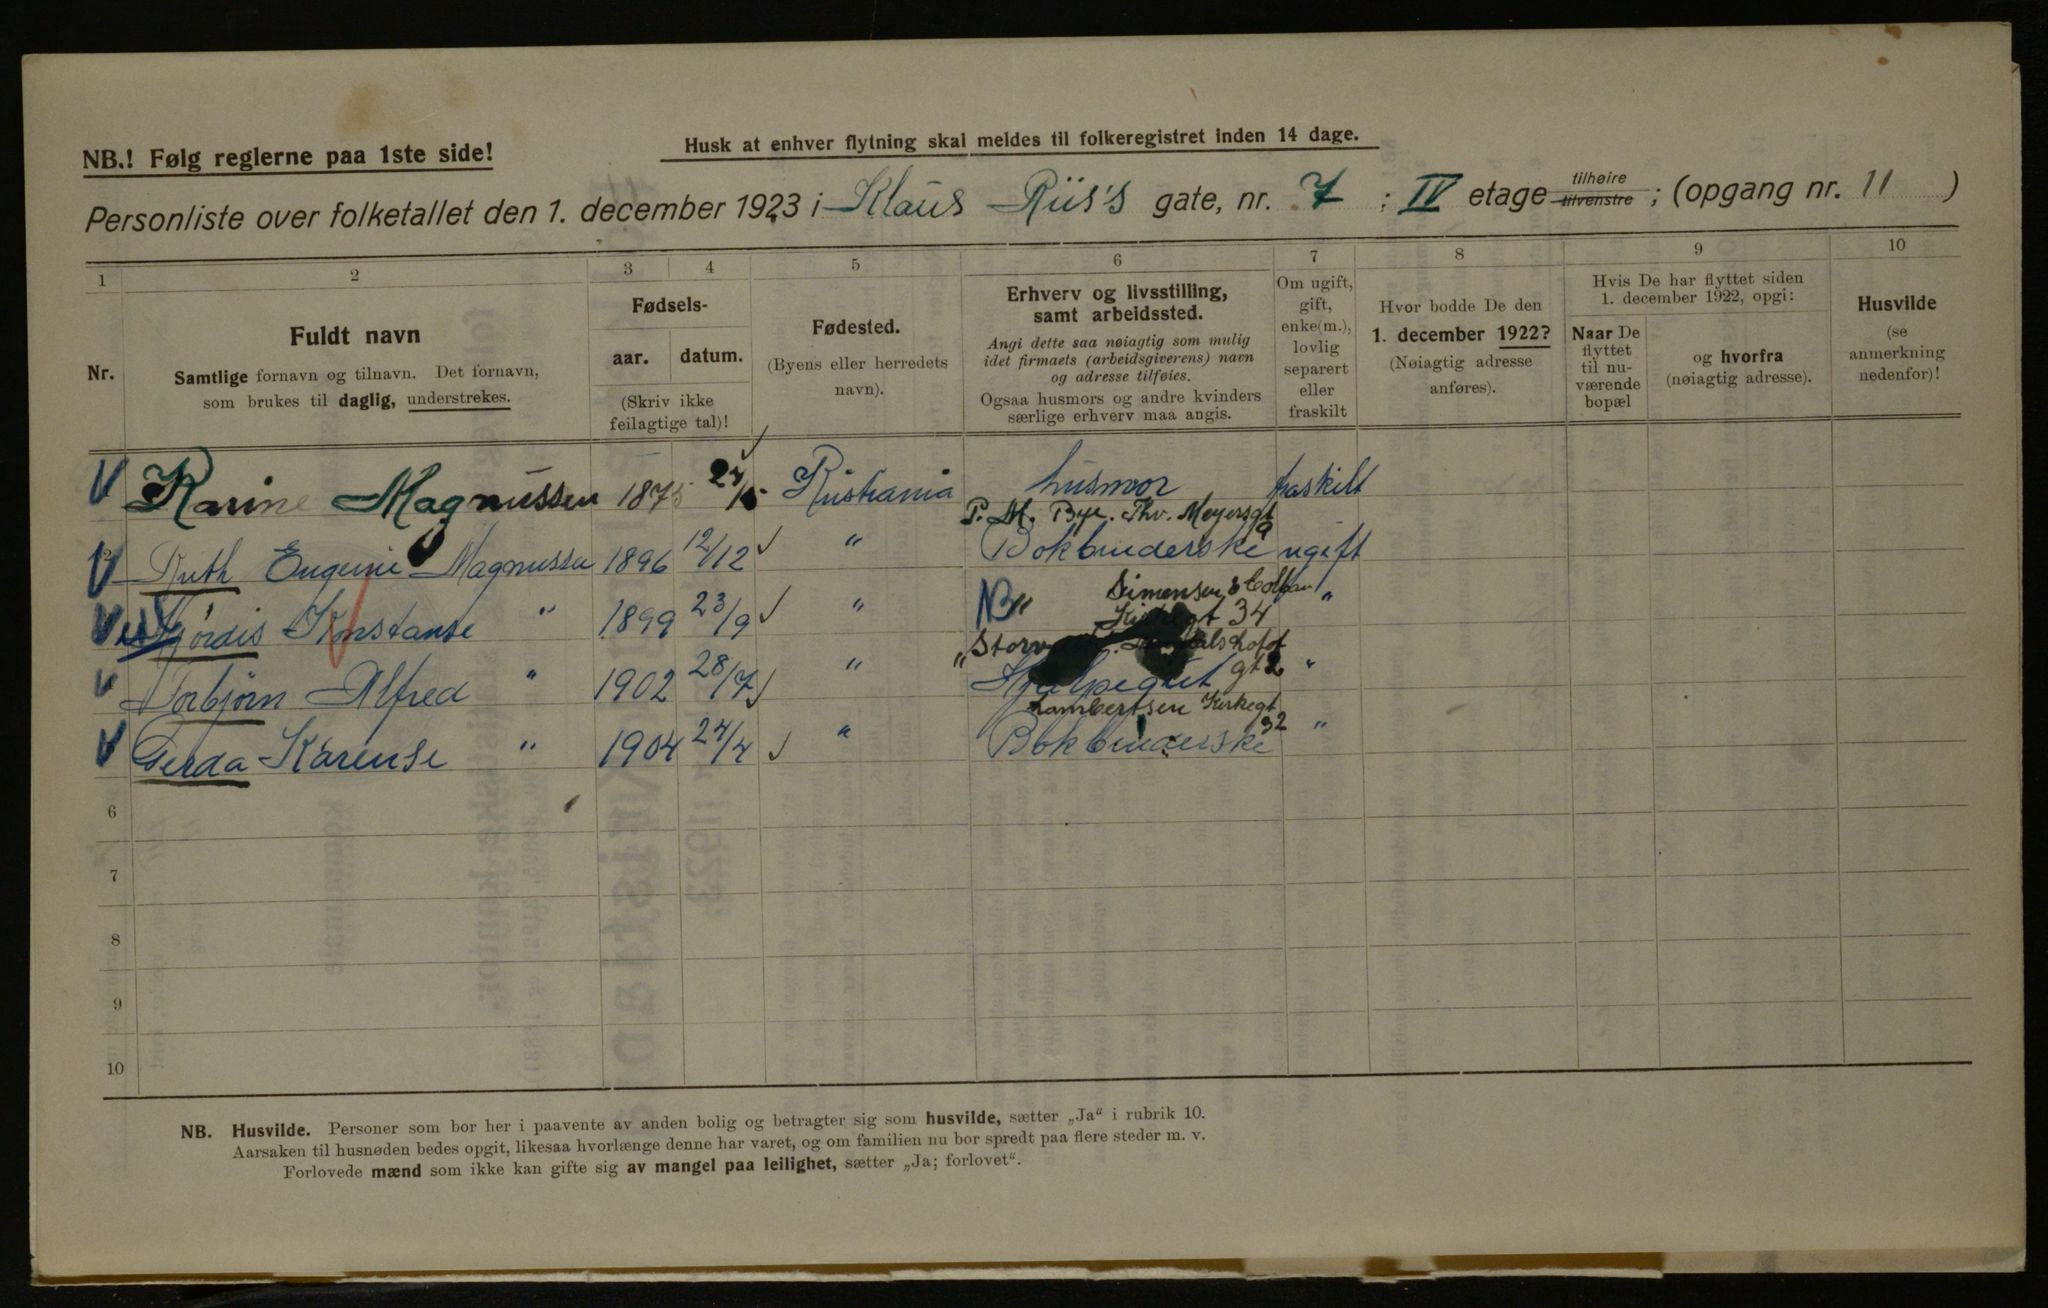 NB.! Følg reglerne paa 1ste side!
Husk at enhver flytning skal meldes til folkeregistret inden 14 dage.
Personliste over folketallet den 1. december 1923 i Klaus Riis's gate, nr. 7 ; IV etage tilhøire tilvenstre ; (opgang nr. 11 )
1 2 3 4 5 6 7 8 9 10
Nr.
Fuldt navn
Samtlige fornavn og tilnavn. Det fornavn,
som brukes til daglig, understrekes.
Fødsels-
aar. datum.
(Skriv ikke
feilagtige tal)!
Fødested.
(Byens eller herredets
navn).
Erhverv og livsstilling,
samt arbeidssted.
Angi dette saa nøiagtig som mulig
idet firmaets (arbeidsgiverens) navn
og adresse tilføies.
Ogsaa husmors og andre kvinders
særlige erhverv maa angis.
Om ugift,
gift,
enke(m.),
lovlig
separert
eller
fraskilt
Hvor bodde De den
1. december 1922?
(Nøiagtig adresse
anføres).
Hvis De har flyttet siden
1. december 1922, opgi:
Naar De
flyttet
til nu-
værende
bopæl
og hvorfra
(nøiagtig adresse).
Husvilde
(se
anmerkning
nedenfor)!
Karine Magnussen 1875 27/5 Kristiania husmor fraskilt
P. M. Bye. Thv. Meyersgt 9
Ruth Eugenie Magnussen 1896 12/12 " Bokbinderske ugift
Simensen &
Hjørdis Konstanse " 1899 23/9 " NB " Kirkegt 34 "
Torbjørn Alfred " 1902 28/7 " gt 2 "
Lambertsen Kirkegt 32
Gerda Karense " 1904 24/4 " Bokbinderske "
6
7
8
9
10
NB. Husvilde. Personer som bor her i paavente av anden bolig og betragter sig som husvilde, sætter „Ja“ i rubrik 10.
Aarsaken til husnøden bedes opgit, likesaa hvorlænge denne har varet, og om familien nu bor spredt paa flere steder m. v.
Forlovede mænd som ikke kan gifte sig av mangel paa leilighet, sætter „Ja; forlovet“.